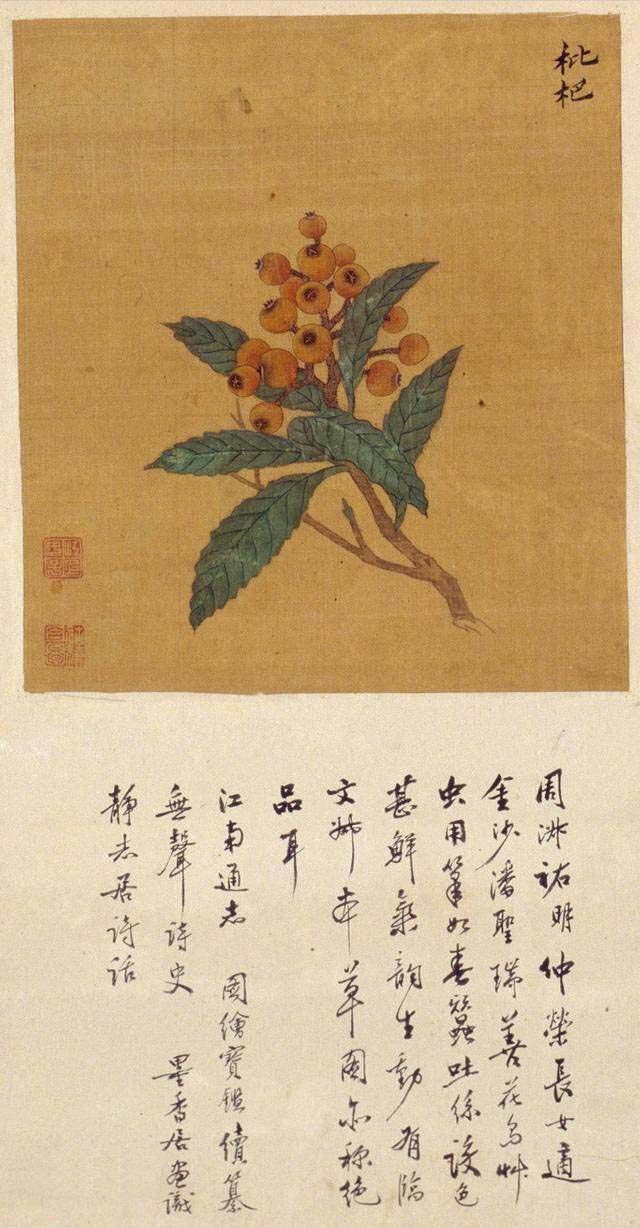 枇杷
周淑祐明仲榮長女適
金沙潘聖瑞善花鳥艸
虫用筆如春蠶吐絲設色
甚鮮氣韻生動有臨
文姊本草圖亦称絕
品耳
江南通志 圖繪寶鑑續纂
無聲詩史 墨香居畫識
靜志居詩話